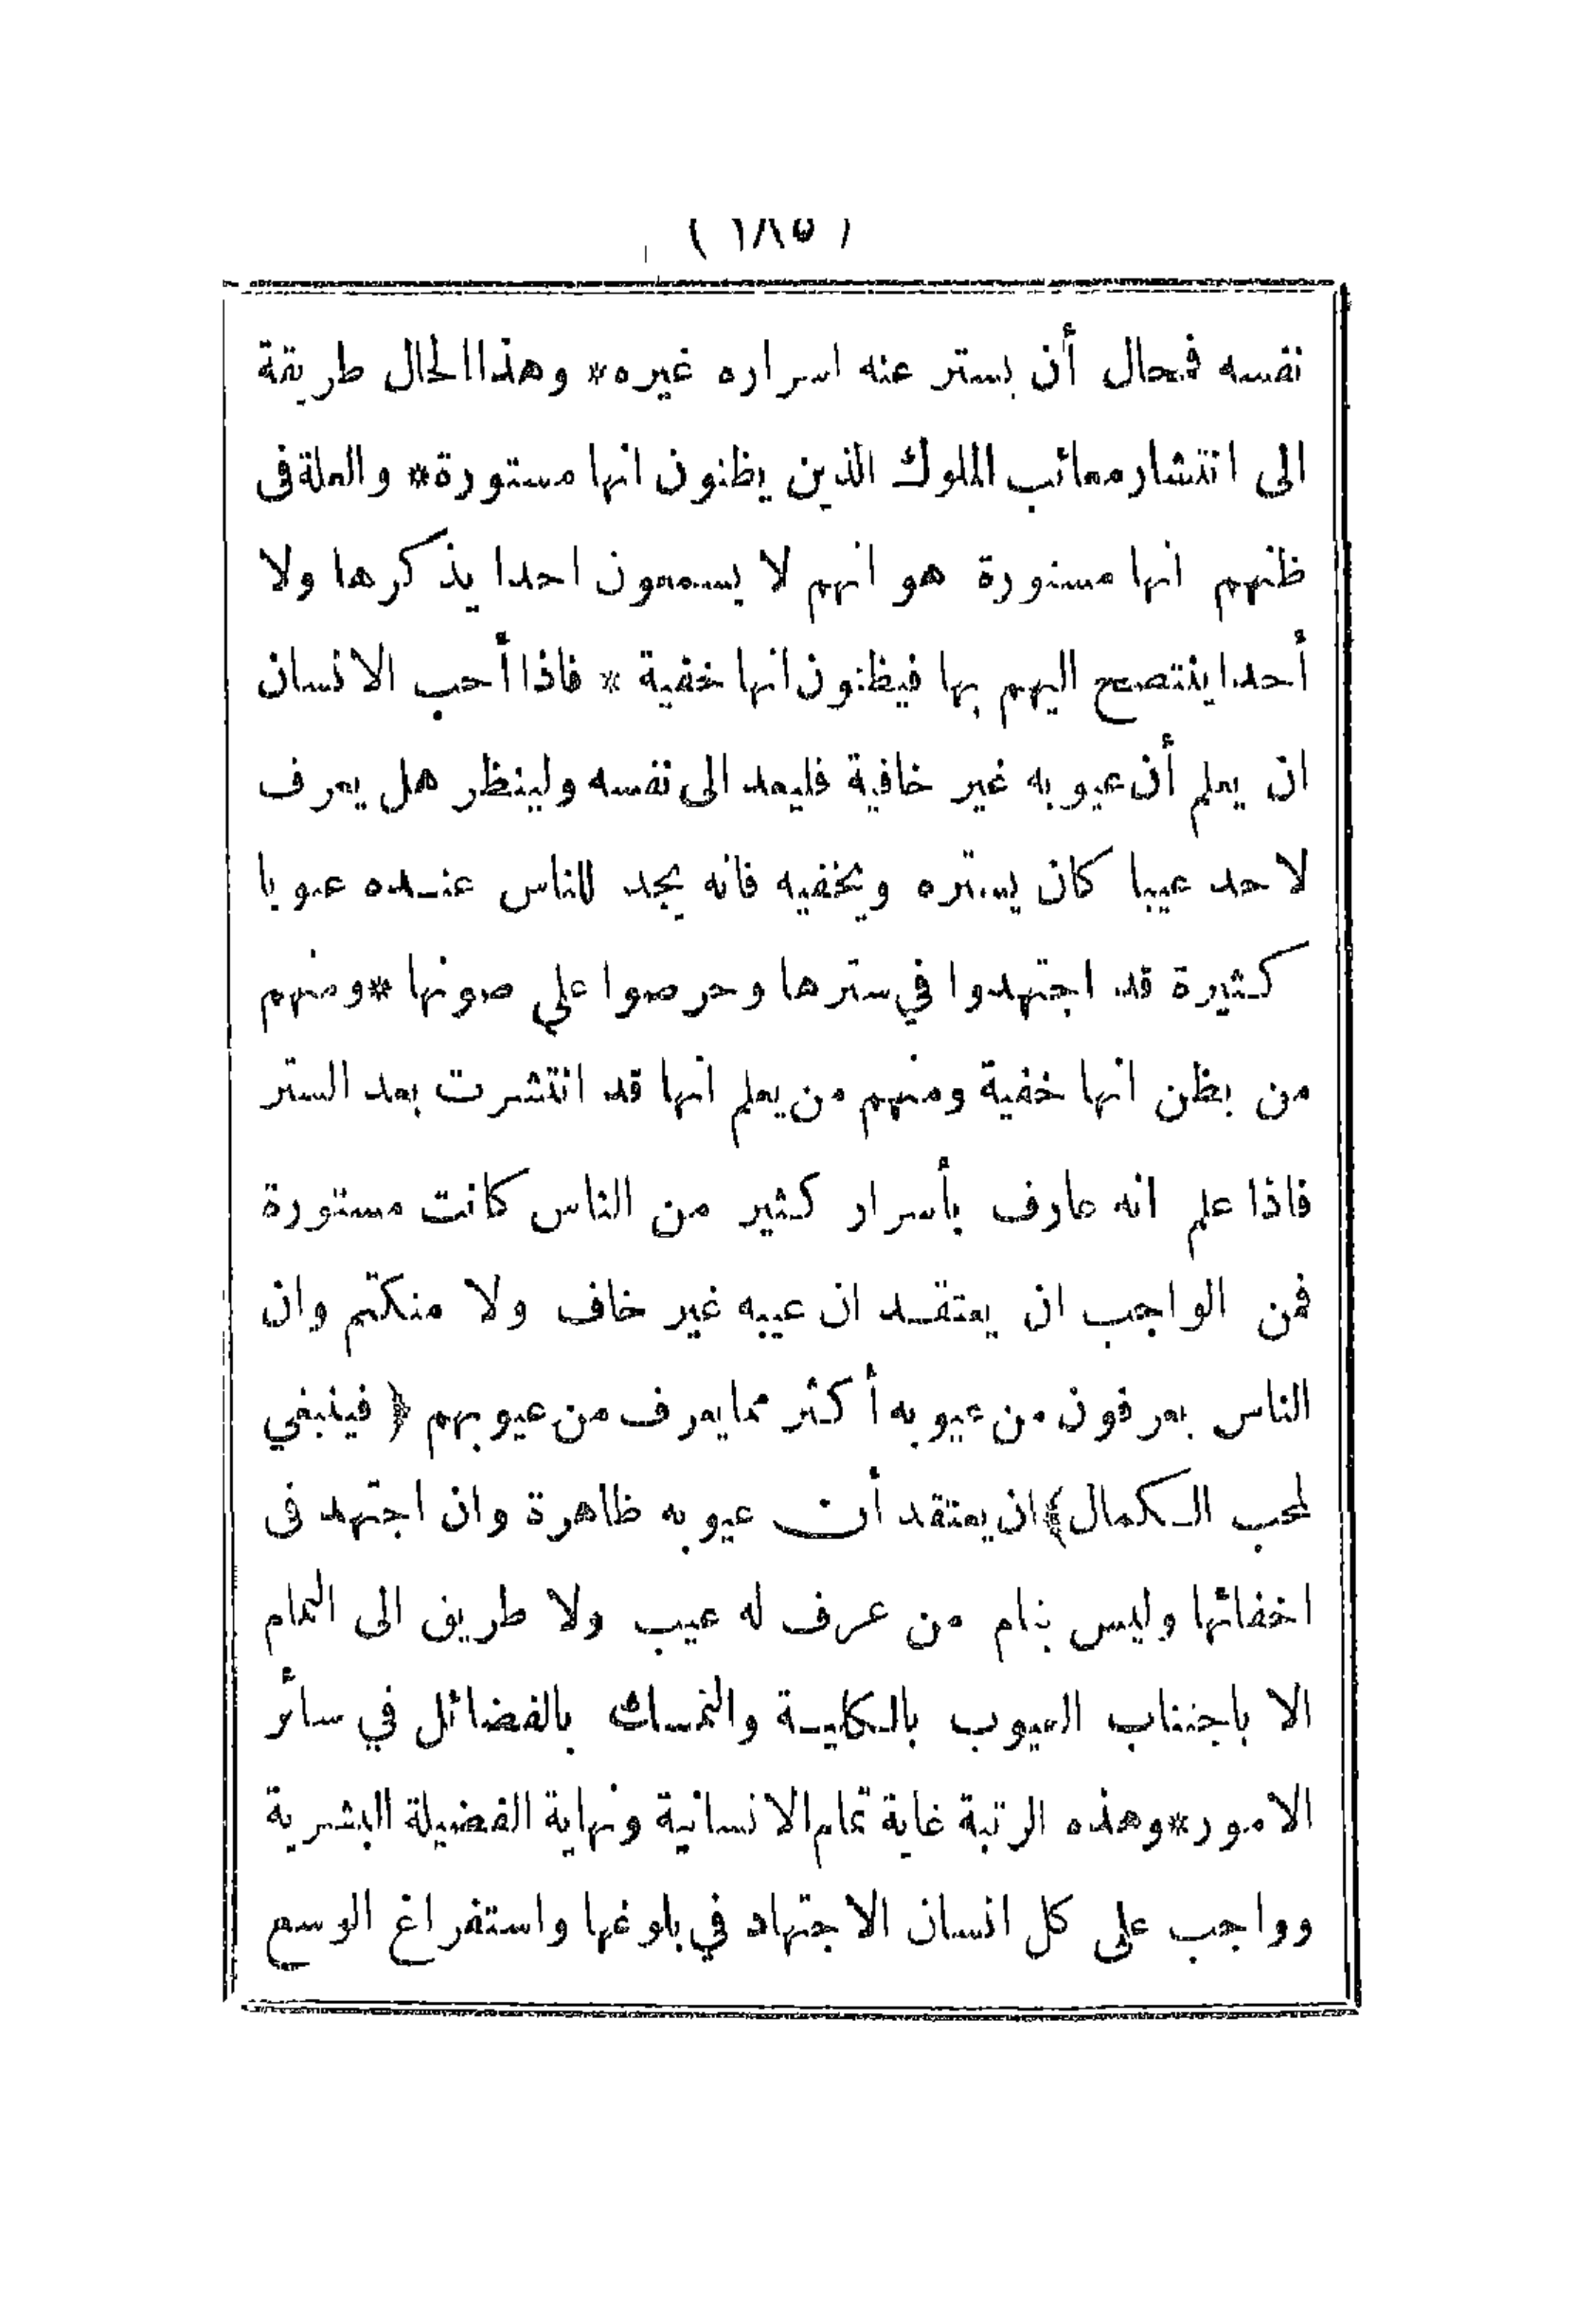 ( ١٨٥ )
نفسه فمحال أن يستر عنه اسراره غيره * وهذا الحال طريقة
الى انتشار معائب الملوك الذين يظنون انها مستورة * والعلة فى
ظنهم انها مستورة هو انهم لا يسمعون احدا يذكرها ولا
أحدا ينتصح اليهم بها فيظنون انها خفية * فاذا أحب الانسان
ان يعلم أن عيوبه غير خافية فليعد الى نفسه ولينظر هل يعرف
لاحد عيبا كان يستره ويخفيه فانه يجد للناس عنده عيوبا
كثيرة قد اجتهدوا في سترها وحرصوا علي صونها * ومنهم
من يظن انها خفية ومنهم من يعلم انها قد انتشرت بعد الستر
فاذا علم انه عارف بأسرار كثير من الناس كانت مستورة
فمن الواجب ان يعتقد ان عيبه غير خاف ولا منكتم وان
الناس يعرفون من عيوبه أكثر مما يعرف من عيوبهم ﴿ فينبغي
لمحب الكمال ﴾ ان يعتقد أن عيوبه ظاهرة وان اجتهد فى
اخفائها وليس بتام من عرف له عيب ولا طريق الى التمام
الا باجتناب العيوب بالكلية والتمسك بالفضائل في سائر
الامور * وهذه الرتبة غاية تمام الانسانية ونهاية الفضيلة البشرية
وواجب على كل انسان الاجتهاد في بلوغها واستفراغ الوسع